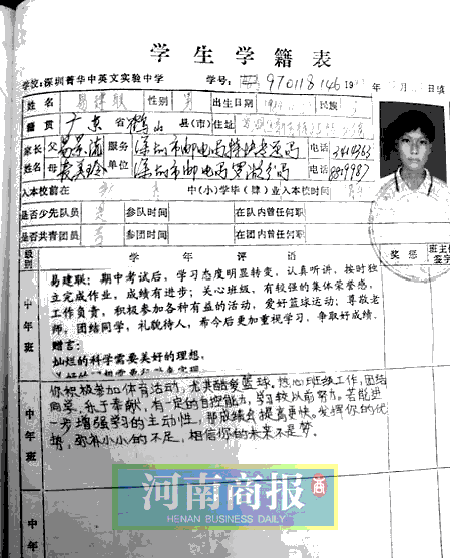 学生学籍表
学校:深圳菁华中英文实验中学 学号: 970118146 19 年 月 日填
姓名 易建联 性别 男 出生日期 民族
籍贯 广东省鹤山县(市) 住址
家长 父 易景流 服务 深圳市邮电局 电话
姓名 母 单位 深圳市邮电局 电话
入本校前在 中(小)学毕(肄)业入本校时间
是否少先队员 是 参队时间 在队内曾任何职
是否共青团员 否 参团时间 在团内曾任何职
级别 学年评语 奖惩 班主任签字
中年班
易建联:期中考试后,学习态度明显转变,认真听讲,按时独
立完成作业,成绩有进步;关心班级,有较强的集体荣誉感,
工作负责,积极参加各种有益的活动,爱好篮球运动;尊敬老
师,团结同学,礼貌待人,希今后更加重视学习,争取好成绩.
赠言:
灿烂的科学需要美好的理想,
中年班
你积极参加体育活动,尤其酷爱篮球。热心班级工作,团结
同学,乐于奉献,有一定的自控能力,学习较以前努力。若能进
一步增强学习的主动性,那成绩会提高更快。发挥你的优
势,弥补小小的不足,相信你的未来不是梦。
中年
河南商报 商
HENAN BUSINESS DAILY